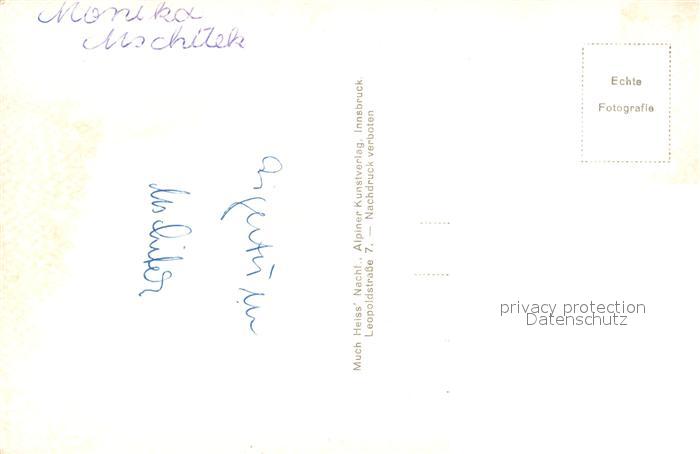 Monika
Mschitek
Echte
Fotografie
Much Heiss' Nachf., Alpiner Kunstverlag, Innsbruck,
Leopoldstraße 7. — Nachdruck verboten
privacy protection
Datenschutz